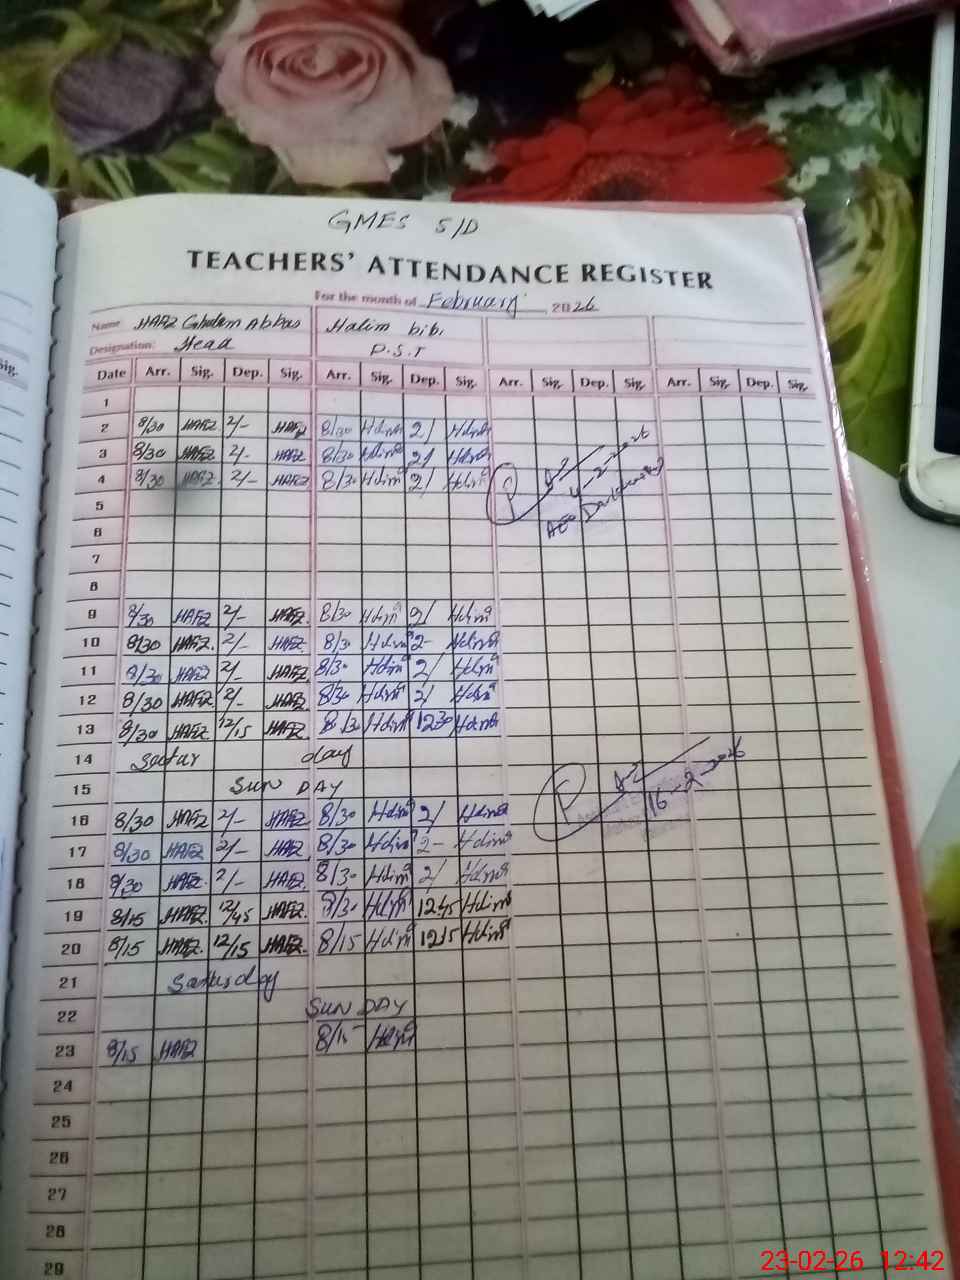 GMES S/D
TEACHERS' ATTENDANCE REGISTER
For the month of February 2026
Name HAFZ Ghulam Abbas Halim bibi
Designation: Head P.S.T
Sig.
Date Arr. Sig. Dep. Sig. Arr. Sig. Dep. Sig. Arr. Sig. Dep. Sig. Arr. Sig. Dep. Sig.
1
2 8/30 HAFZ 2/- HAFZ 8/30 Halima 2/ Halima
3 8/30 HAFZ 2/- HAFZ 8/30 Halima 2/ Halima
4 8/30 HAFZ 2/- HAFZ 8/30 Halima 2/ Halima
4-2-2026
5
6
7
8
9 8/30 HAFZ 2/- HAFZ 8/30 Halima 2/ Halima
10 8/30 HAFZ 2/- HAFZ 8/30 Halima 2- Halima
11 8/30 HAFZ 2/- HAFZ 8/30 Halima 2/ Halima
12 8/30 HAFZ 2/- HAFZ 8/30 Halima 2/ Halima
13 8/30 HAFZ 12/15 HAFZ 8/30 Halima 1230 Halima
14 Satur day
15 SUN DAY
16-2-2026
16 8/30 HAFZ 2/- HAFZ 8/30 Halima 2/ Halima
17 8/30 HAFZ 2/- HAFZ 8/30 Halima 2- Halima
18 8/30 HAFZ 2/- HAFZ 8/30 Halima 2/ Halima
19 8/15 HAFZ 12/45 HAFZ 8/30 Halima 1245 Halima
20 8/15 HAFZ 12/15 HAFZ 8/15 Halima 1215 Halima
21 Saturday
22 SUN DAY
23 8/15 HAFZ 8/15 Halima
24
25
26
27
28
29
23-02-26 12:42